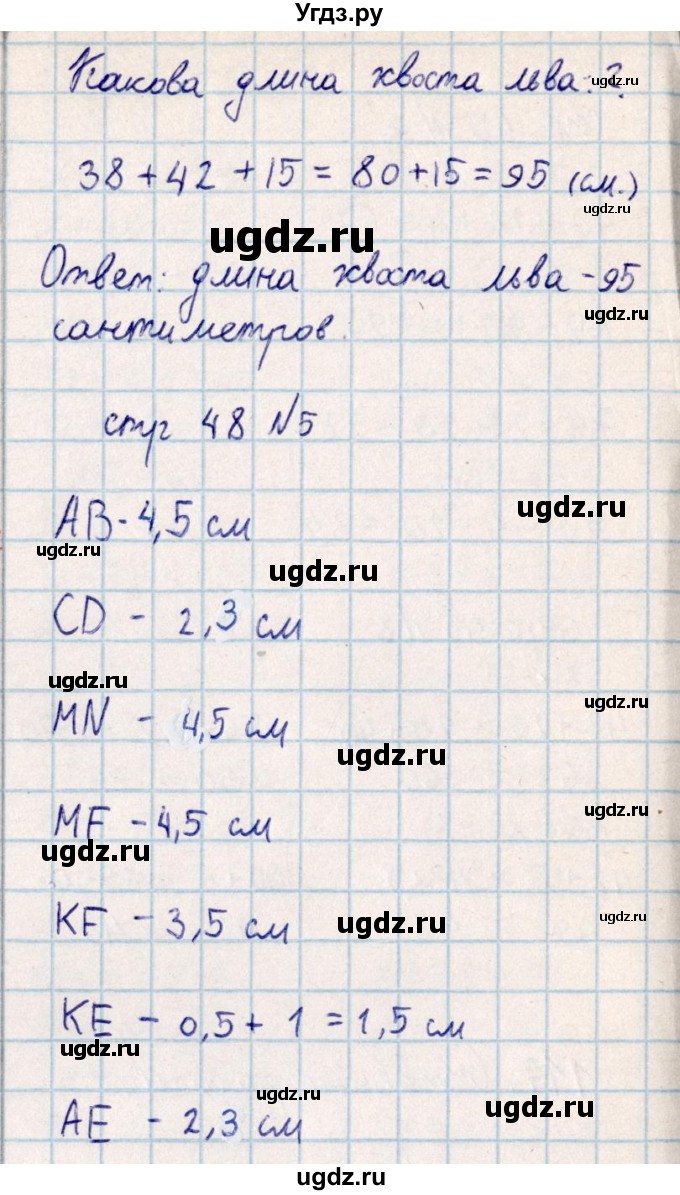 Угдз.ру
Какова длина хвоста льва.?
ugdz.ru
38 + 42 + 15 = 80 + 15 = 95 (см.)
ugdz.ru
ugdz.ru
Ответ: длина хвоста льва - 95
ugdz.ru
сантиметров.
стр 48 №5
АВ - 4,5 см
ugdz.ru
ugdz.ru
ugdz.ru
ugdz.ru
CD - 2,3 см
ugdz.ru
ugdz.ru
MN - 4,5 см
ugdz.ru
MF - 4,5 см
ugdz.ru
ugdz.ru
KF - 3,5 см
ugdz.ru
ugdz.ru
KE - 0,5 + 1 = 1,5 см
ugdz.ru
ugdz.ru
ugdz.ru
AE - 2,3 см
ugdz.ru